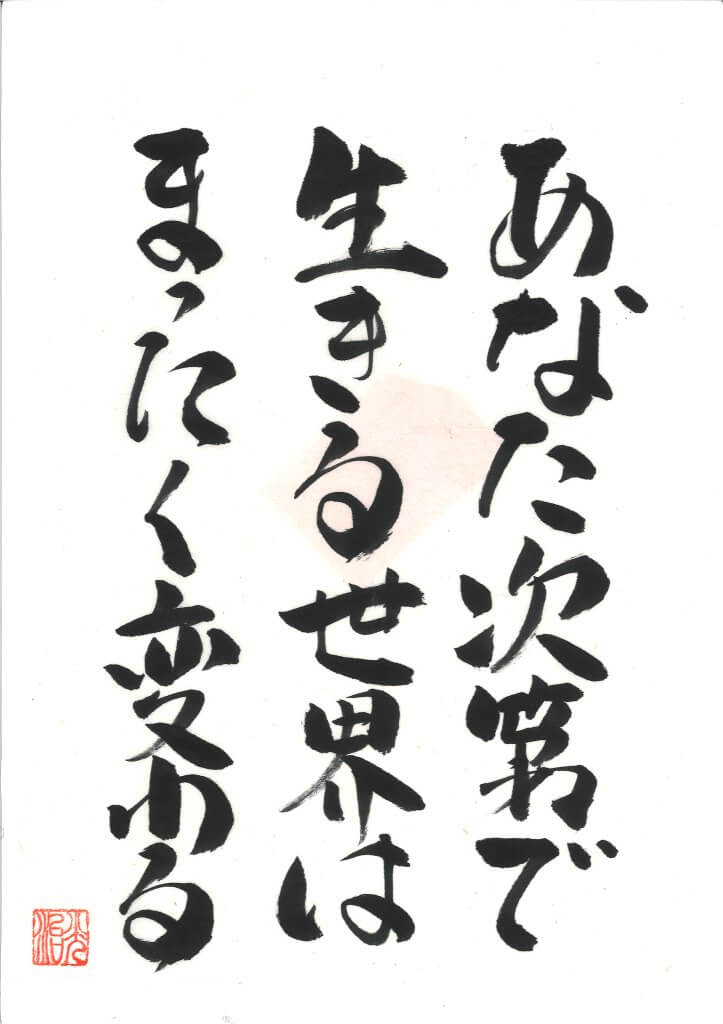 あなた次第で
生きる世界は
まったく変わる